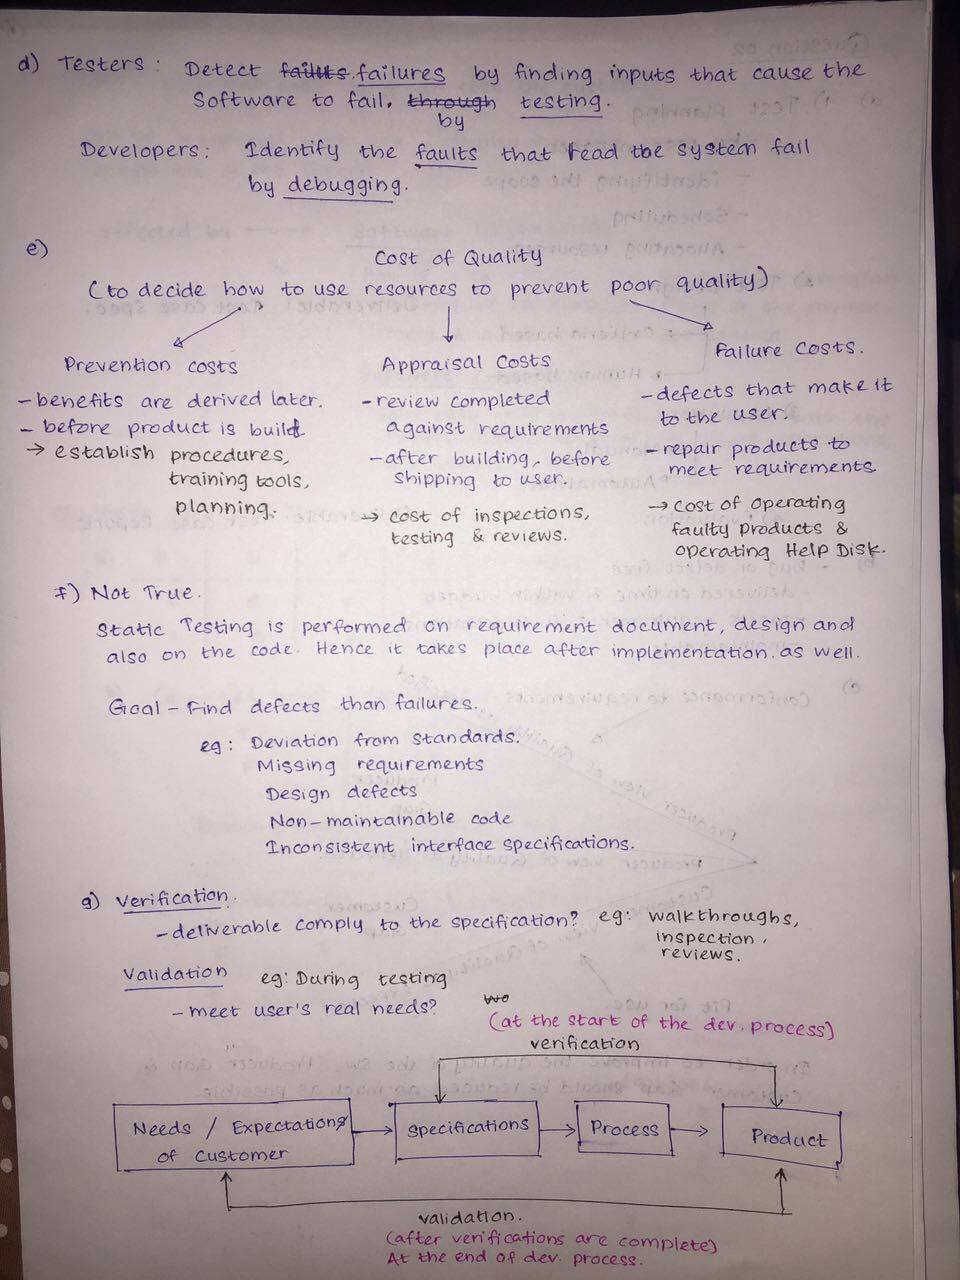 d) Testers : Detect failuts failures by finding inputs that cause the
Software to fail, through testing.
by
Developers : Identify the faults that read the system fail
by debugging.
e)
Cost of Quality
(to decide how to use resources to prevent poor quality)
Prevention costs
- benefits are derived later.
- before product is build
→ establish procedures,
training tools,
planning.
Appraisal Costs
- review completed
against requirements
- after building, before
shipping to user.
→ cost of inspections,
testing & reviews.
Failure Costs.
- defects that make it
to the user.
- repair products to
meet requirements
→ Cost of operating
faulty products &
operating Help Disk.
f) Not True.
Static Testing is performed on requirement document, design and
also on the code. Hence it takes place after implementation. as well.
Goal - Find defects than failures.
eg : Deviation from standards.
Missing requirements
Design defects
Non-maintainable code
Inconsistent interface specifications.
g) Verification.
- deliverable comply to the specification? eg: walkthroughs,
inspection,
reviews.
Validation eg: During testing
- meet user's real needs?
(at the start of the dev. process)
verification
Needs / Expectations
of customer
Specifications
Process
Product
validation.
(after verifications are complete)
At the end of dev. process.